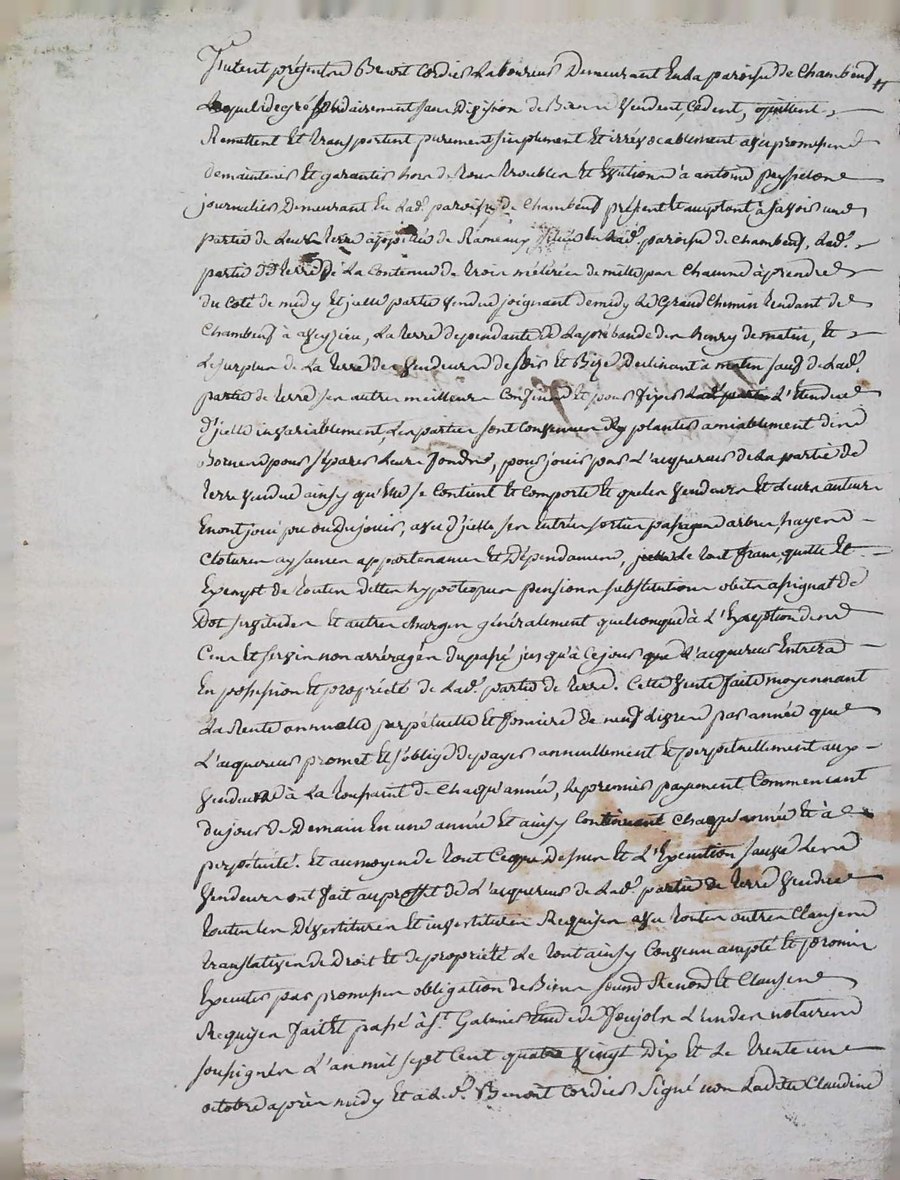 furent présents Benoit Cordier Laboureur Demeurant En la paroisse de Chambeuf
Lesquels de gré solidairement sans Division de Biens Vendent, Cèdent, quittent
Remettent Et transportent purement simplement Et irrévocablement avec promesse
de maintenir Et garantir hors de tous troubles Et Evictions à antoine peysselon
journalier Demeurant En Lad.e paroisse de Chambeuf présent Et acceptant à sçavoir une
partie de Leur terre appellée de Rameaux située En Lad.e paroisse de Chambeuf, Lad.e
partie De terre de La Contenue de trois métérées de mille pas Chacune à prendre
du Coté de midy Et icelle partie vendue joignant de midy Le Grand Chemin tendant de
Chambeuf à Veyzieu, La terre dépendante De La prébande des henry de matin, Et
Le surplus de La terre des Vendeurs de soir Et Bize Declinant à matin sauf de Lad.e
partie de terre ses autres meilleurs Confins Et pour fixer L'Etendue
D'icelle invariablement, Les parties sont Convenues D'y planter amiablement des
Bornes pour séparer Leurs fonds, pour jouir par L'acquereur de La partie de
terre vendue ainsy qu'Elle se Contient Et Comporte Et que Les Vendeurs Et Leurs auteurs
En ont joui pu ou Du jouir, avec D'icelle ses Entrées sorties passages arbres, hayes
Clotures aysances appartenances Et Dépendances, Le tout franc, quitte Et
Exempt de toutes dettes hypotèques pensions substitutions obits assignat de
Dot servitudes Et autres charges généralement quelconques à L'Exception des
Cens Et servis non arréragés Du passé jusqu'à Ce jour que L'acquereur Entrera
En possession Et propriété de Lad.e partie de terre. Cette Vente faite moyennant
La Rente annuelle perpétuelle Et foncière de neuf Livres par année que
L'acquereur promet Et s'oblige de payer annuellement Et perpetuellement aux
Vendeurs à La toussaint de Chaqu'année, Le premier payement Commencant
du jour de Demain En une année Et ainsy Continuant Chaque année Et à
perpétuité. Et au moyen de tout Ce que Dessus Et L'Execution sauve Les
Vendeurs ont fait au proffit de L'acquereur de Lad.e partie de terre Vendue
toutes Les Devestitures Et investitures Requises avec toutes autres Clauses
translatives de Droit Et de propriété Le tout ainsy Convenu accepté Et promis
Executer par promesses obligation de Biens soumis Renond Et Clauses
Requises fait Et passé à S.t Galmier Etude de L'un des notaires
soussignés L'an mil sept Cent quatre Vingt Dix Et Le trente un
octobre après midy Et a Led. Benoit Cordier Signé non Ladite Claudine